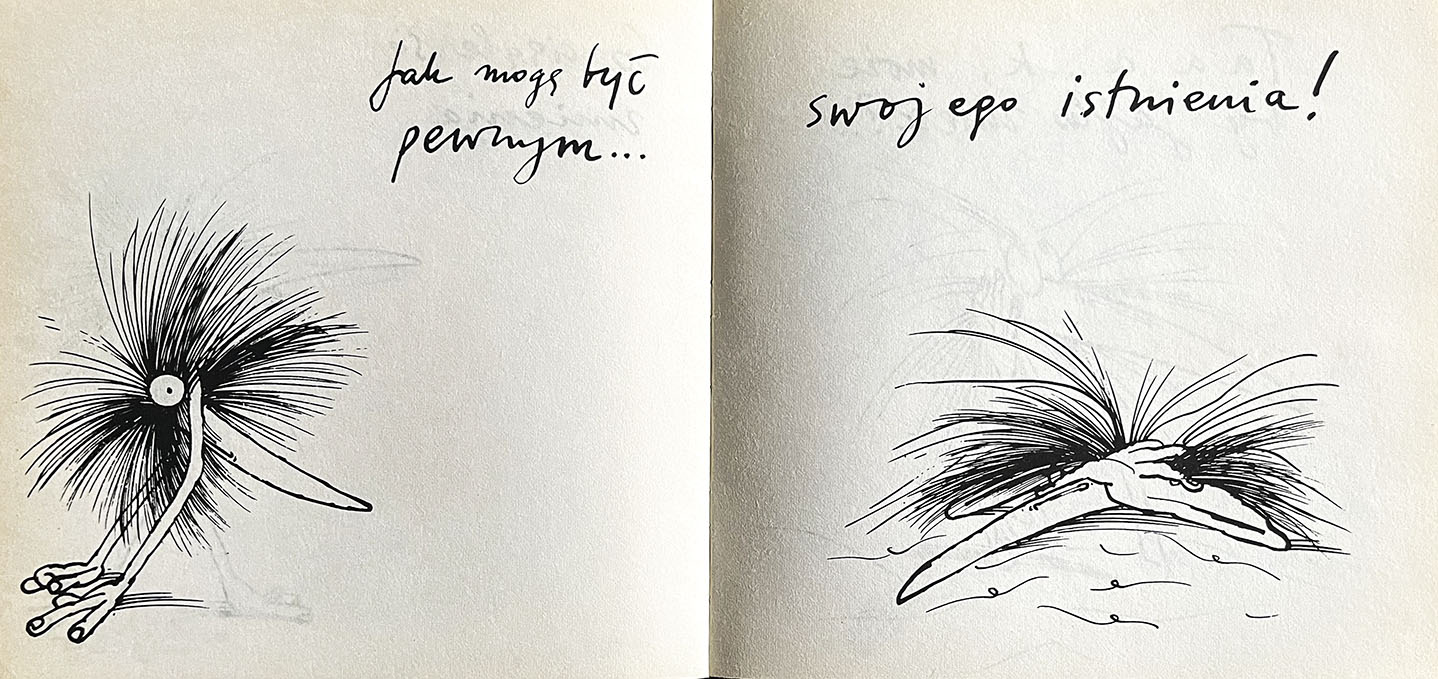 Jak mogę być
pewnym...
swojego istnienia!